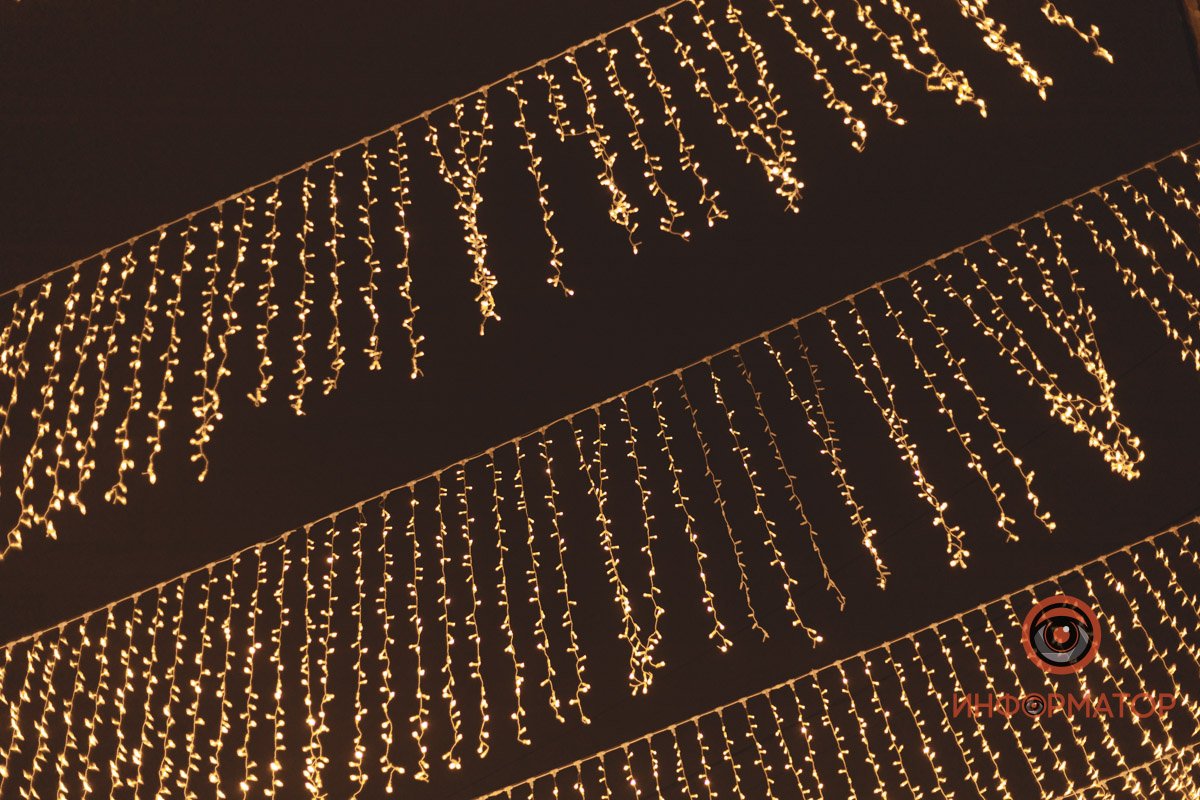 ИНФОРМАТОР